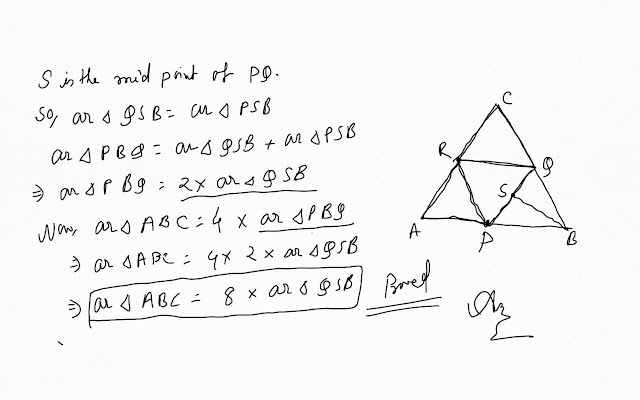 S is the mid point of PQ.
So, ar △ QSB = ar △ PSB
ar △ PBQ = ar △ QSB + ar △ PSB
⇒ ar △ PBQ = 2 × ar △ QSB
Now, ar △ ABC = 4 × ar △ PBQ
⇒ ar △ ABC = 4 × 2 × ar △ QSB
⇒ ar △ ABC = 8 × ar △ QSB Proved
C
R
Q
S
A
P
B